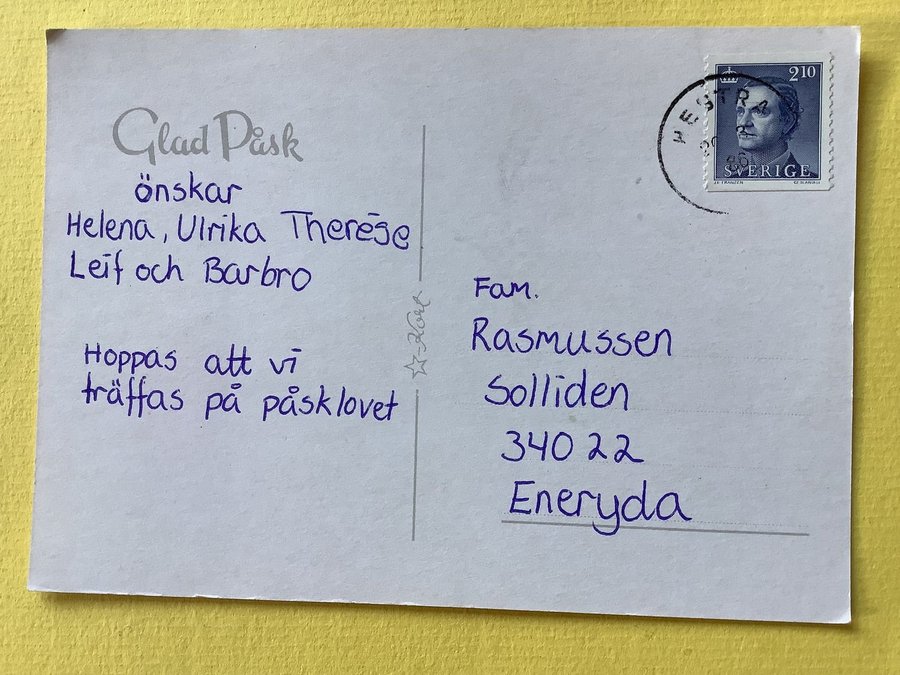 Glad Påsk
önskar
Helena, Ulrika Therése
Leif och Barbro
Hoppas att vi
träffas på påsklovet
Kort
210
SVERIGE
HESTRA
86
Fam.
Rasmussen
Solliden
340 22
Eneryda